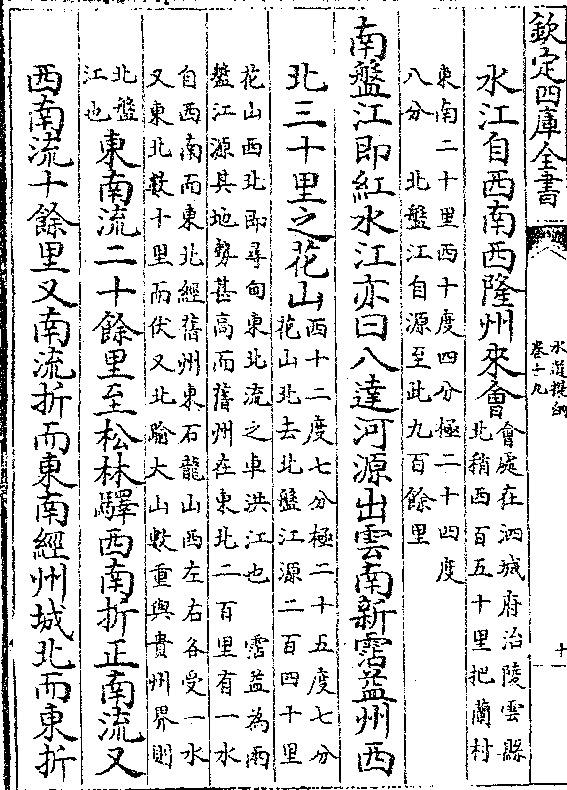 欽定四庫全書
水道提綱
卷十九
十一
水江自西南西隆州來會
會處在泗城府治陵雲縣
北稍西百五十里把蘭村
東南二十里西十度四分極二十四度
八分 北盤江自源至此九百餘里
南盤江即紅水江亦曰八達河源出雲南新霑益州西
北三十里之花山
西十二度七分極二十五度七分
花山北去北盤江源二百四十里
花山西北即尋甸東北流之車洪江也 霑益為兩
盤江源其地勢甚高而舊州在東北二百里有一水
自西南而東北經舊州東石龍山西左右各受一水
又東北數十里而伏又北踰大山數重與貴州界則
北盤
江也
東南流二十餘里至松林驛西南折正南流又
西南流十餘里又南流折而東南經州城北而東折